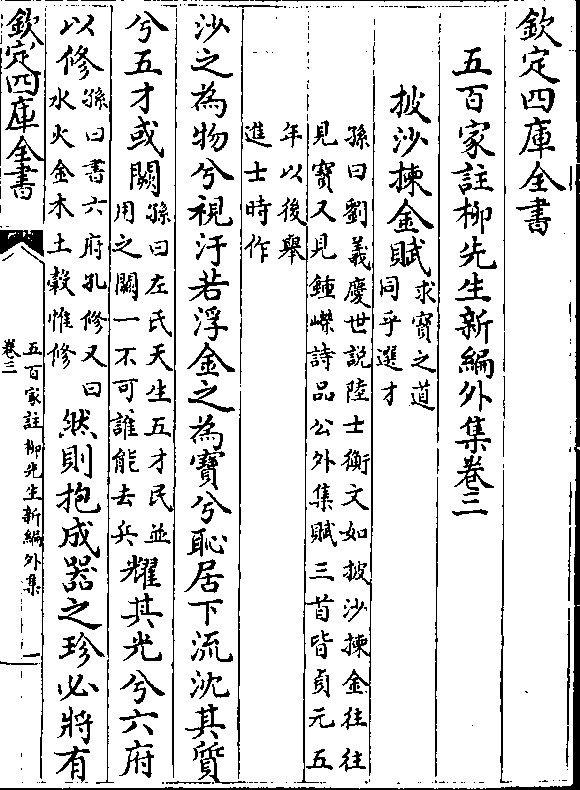 欽定四庫全書
五百家註柳先生新編外集卷三
披沙揀金賦求寶之道
同乎選才
孫曰劉義慶世說陸士衡文如披沙揀金往往
見寶又見鍾嶸詩品公外集賦三首皆貞元五
年以後舉
進士時作
沙之為物兮視汙若浮金之為寶兮恥居下流沈其質
兮五才或闕孫曰左氏天生五才民並
用之闕一不可誰能去兵耀其光兮六府
以修孫曰書六府孔修又曰
水火金木土穀惟修然則抱成器之珍必將有
欽定四庫全書
五百家註柳先生新編外集
卷三
一